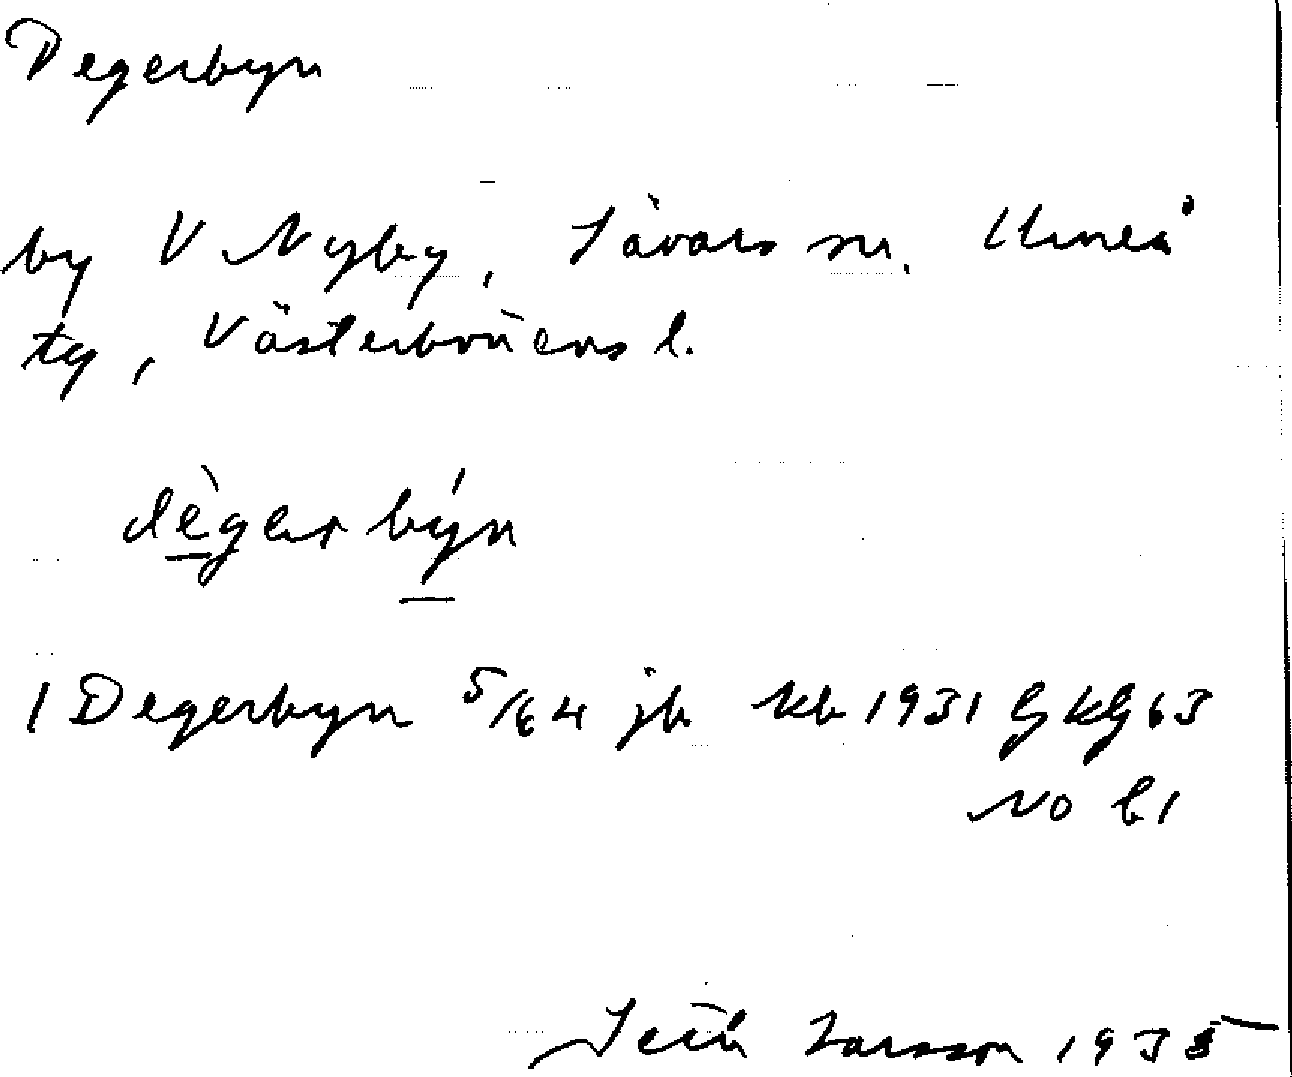 Degerbyn
by V Nyby, Sävars sn. Umeå
tg, Västerbottens l.
dègerbýn
1 Degerbyn 5/64 jb kb 1931 GkG 63
NO b1
Seth Larsson 1935